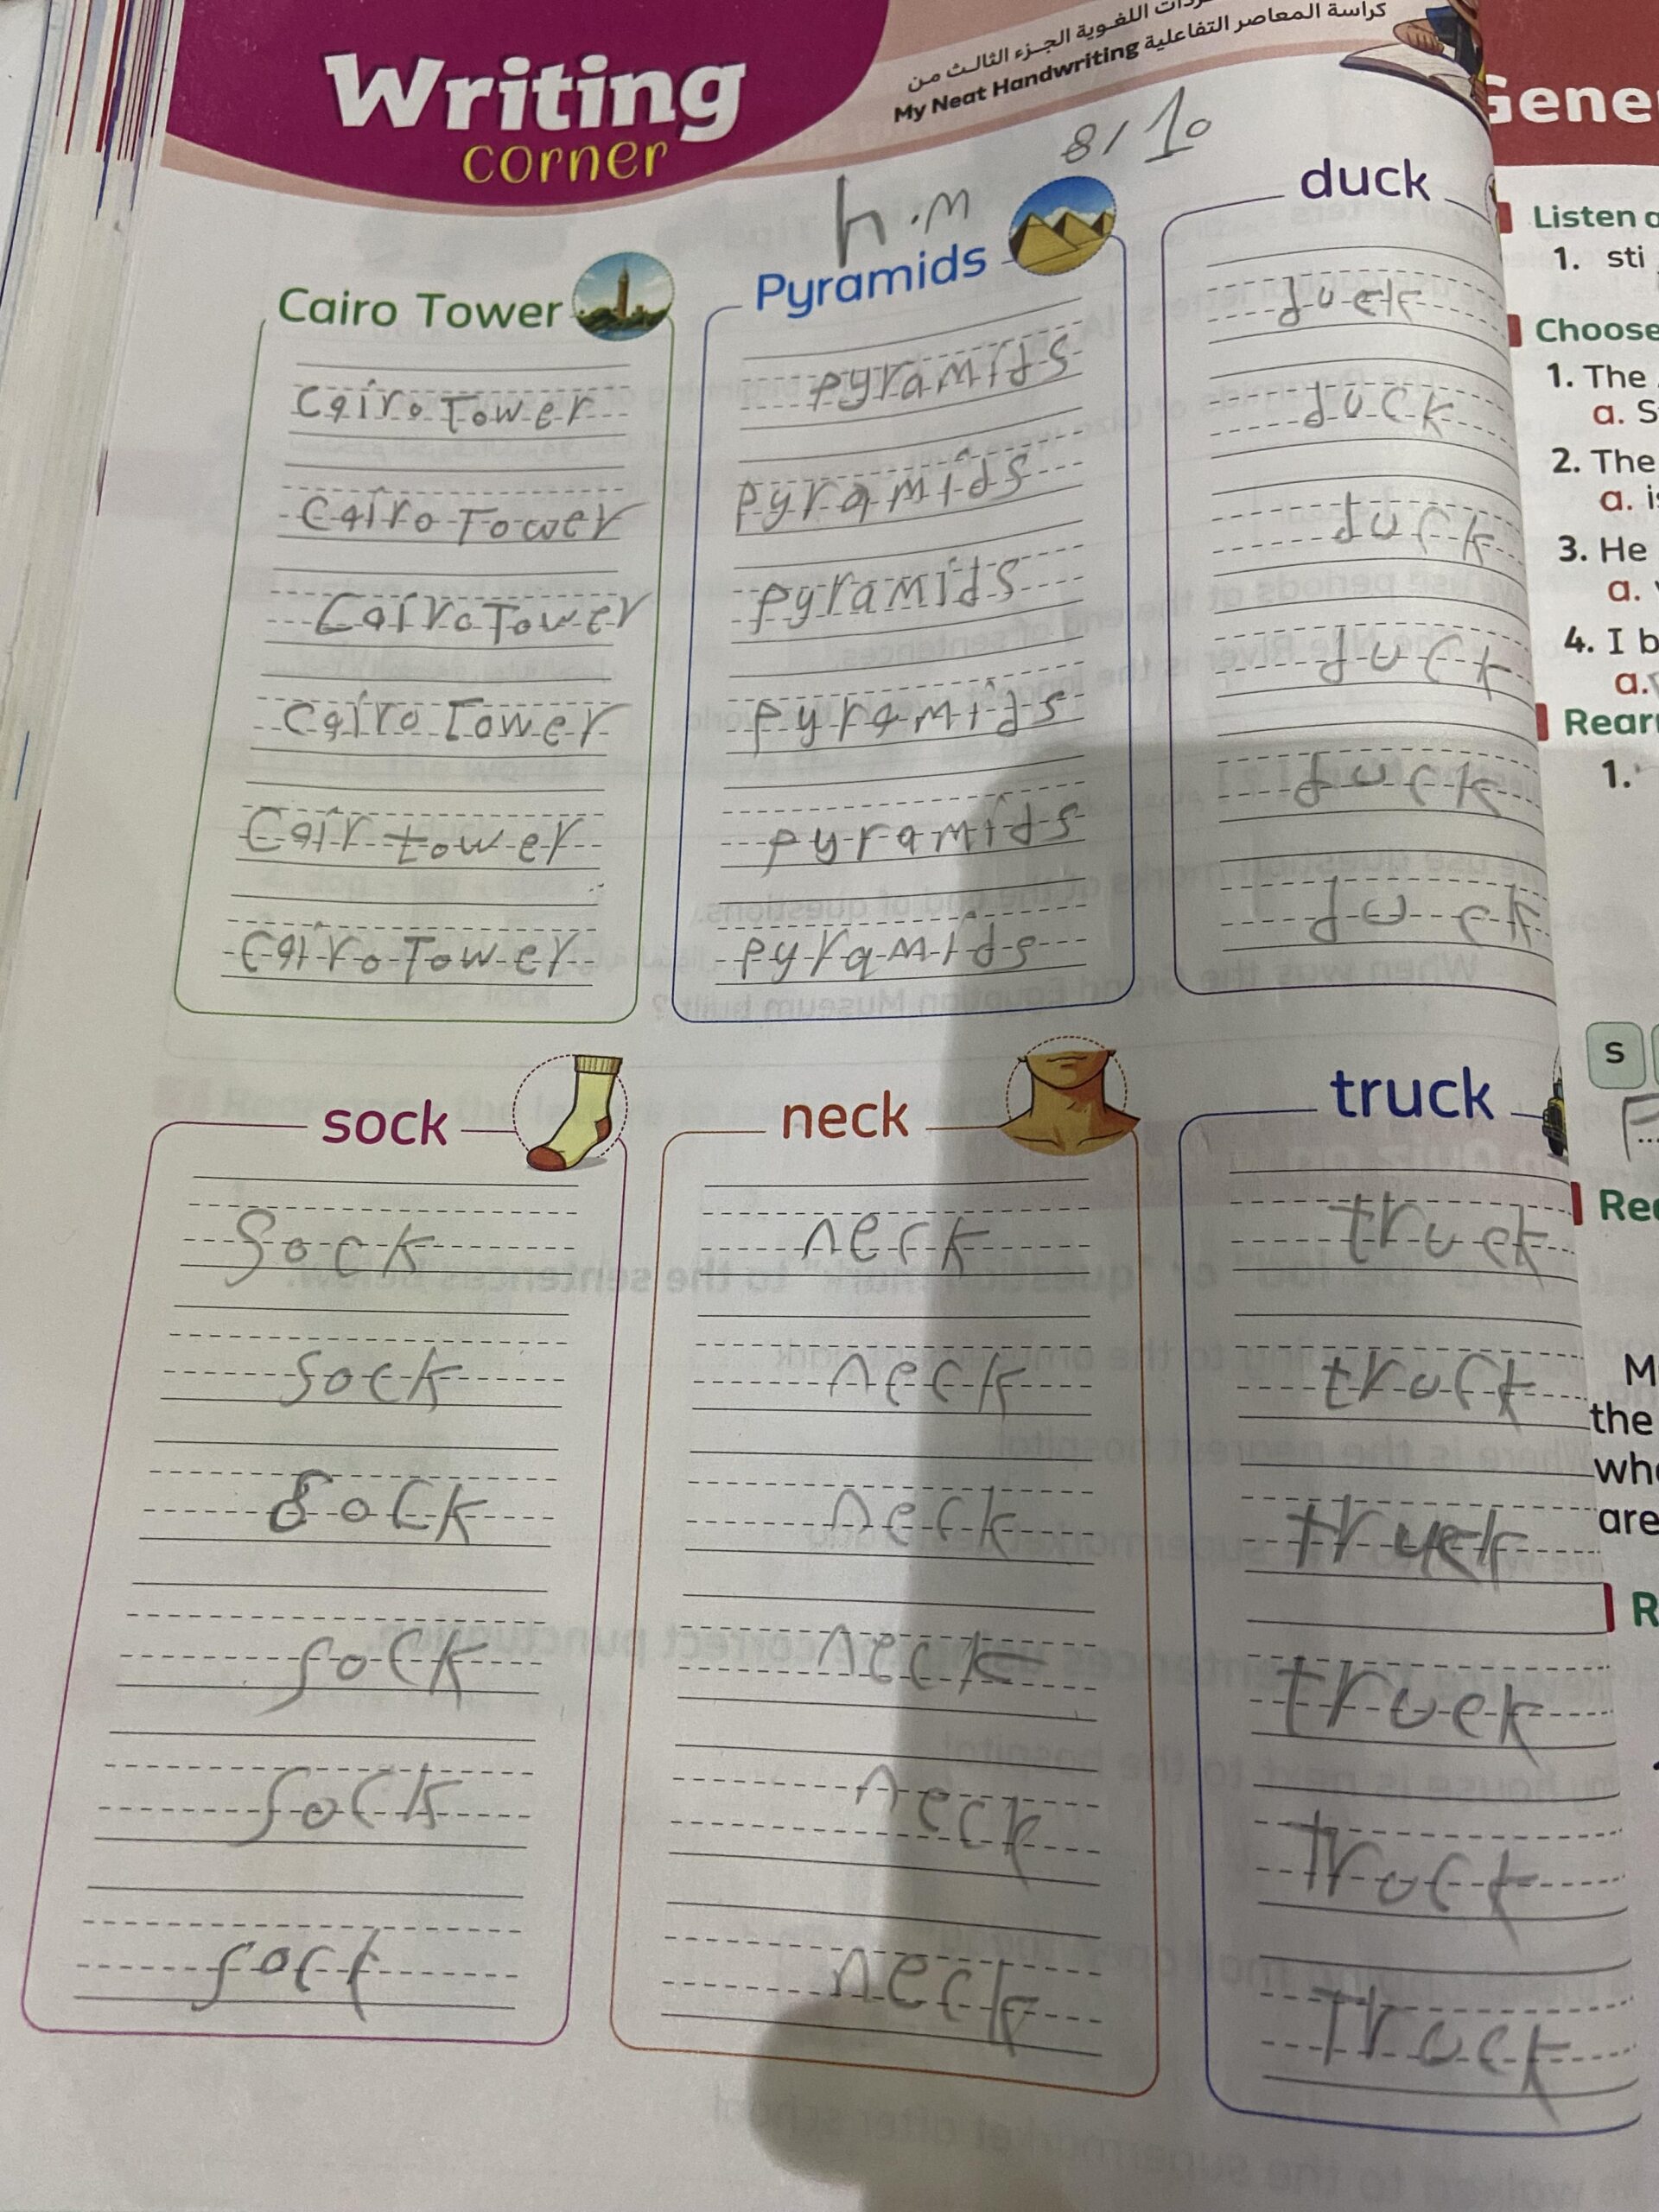 Writing
corner
اللغوية الجزء الثالث من
كراسة المعاصر التفاعلية My Neat Handwriting
8/10
h.m
Cairo Tower
Cairo Tower
Cairo Tower
Cairo Tower
Cairo Tower
Cair tower
Cairo Tower
Pyramids
pyramids
pyramids
pyramids
pyramids
pyramids
pyramids
duck
duck
duck
duck
duck
duck
duck
sock
sock
sock
sock
sock
sock
sock
neck
neck
neck
neck
neck
neck
neck
truck
truck
truck
truck
truck
Truck
Truck
Gene
Listen
1. sti
Choose
1. The
a. S
2. The
a. i
3. He
a.
4. I b
a.
Rear
1.
s
Re
M
the
wh
are
R